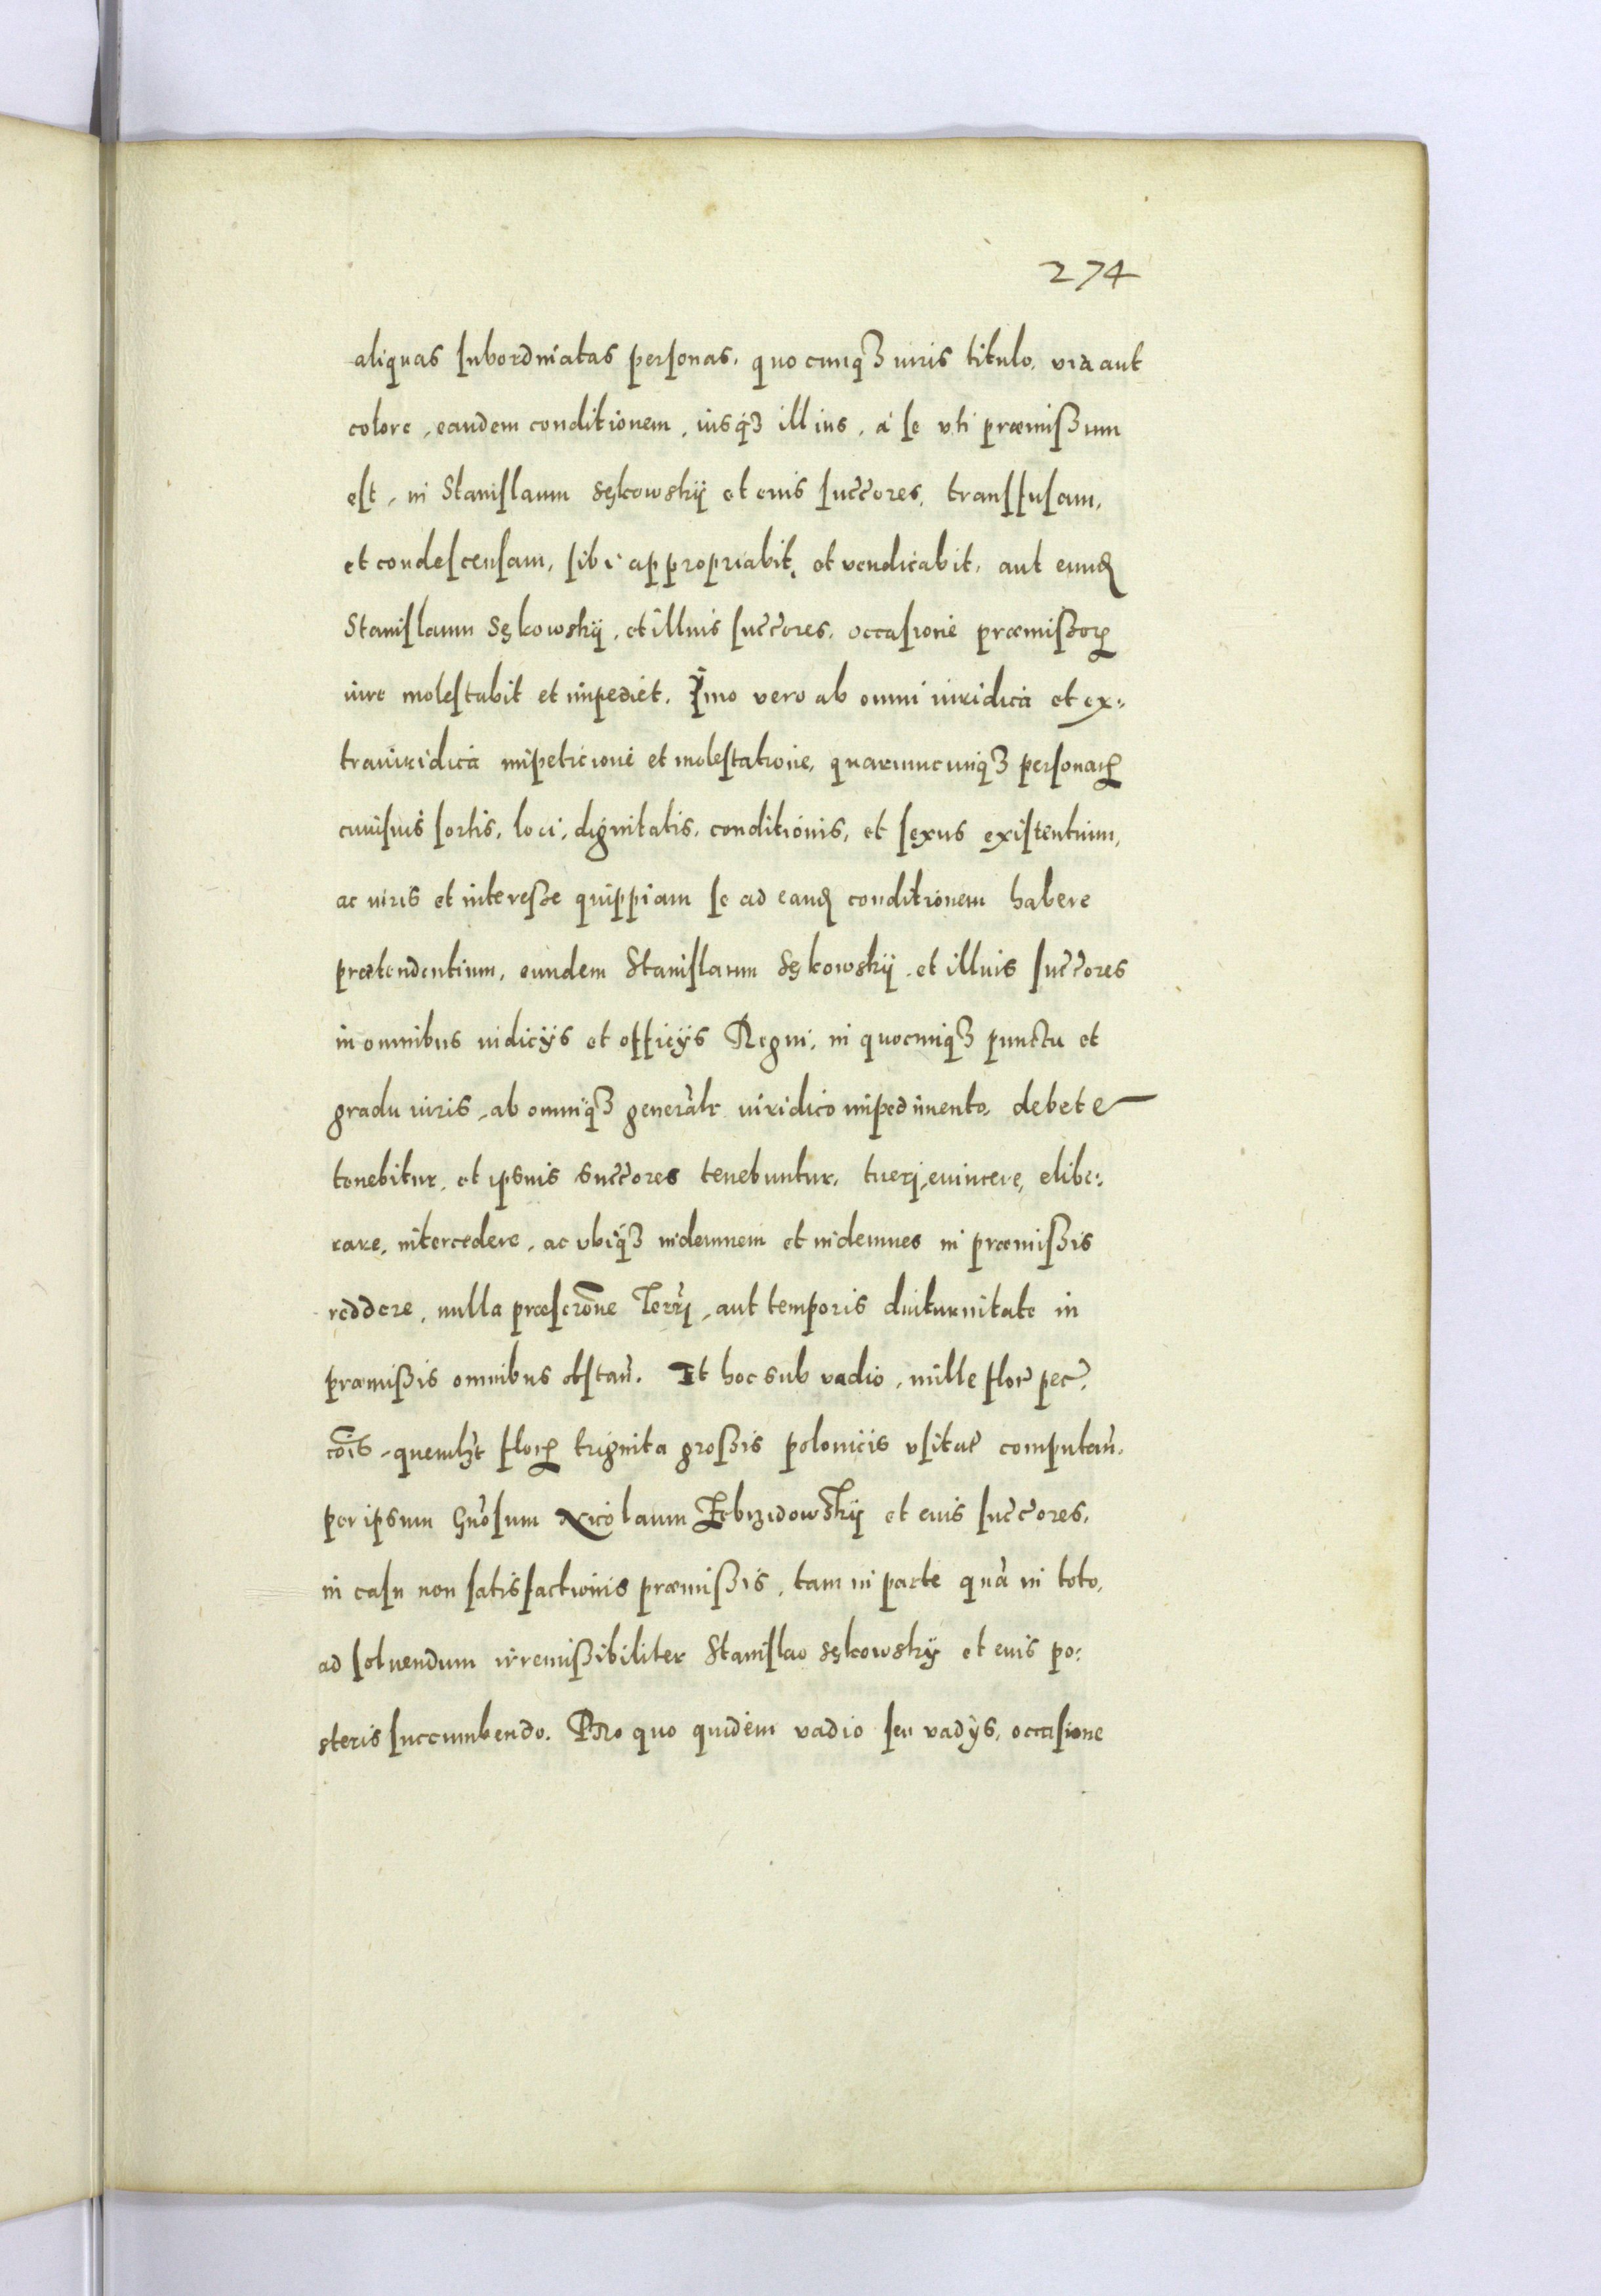 274
aliquas subordinatas personas, quocunqȝ iuris titulo, via aut
colore, eandem conditionem, iusqȝ illius, à se vti præmissum
est, in Stanislaum Sękowskÿ et eius succ̃ores, transfusam,
et condescensam, sibi appropriabit, et vendicabit, aut eundꝫ
Stanislaum Sękowskÿ, et illius succ̃ores, occasione præmissoꝝ
iure molestabit et impediet. Imo vero ab omni iuridica et ex:
traiuridica impeticione et molestatione, quarumcunqȝ personaꝝ
cuiusuis sortis, loci, dignitatis, conditionis, et sexus existentium,
ac iuris et interesse quippiam se ad eandꝫ conditionem habere
prætendentium, eundem Stanislaum Sękowskÿ et illius succ̃ores
in omnibus iudicÿs et officÿs Regni, in quocunqȝ punctu et
gradu iuris, ab omniqȝ generali iuridico impedimento, debet e
tenebitur, et ipsius succ̃ores tenebuntur, tueri, euincere, elibe:
rare, intercedere, ac vbiqȝ indemnem et indemnes in præmissis
reddere, nulla præscr̃one Terr̃j, aut temporis diuturnitate in
præmissis omnibus obstan̄. Et hoc sub vadio, mille flor̃ pec̃.
cõis, quemlȝt floꝝ triginta grossis polonicis vsitat̃ computan̄.
per ipsum Gn̄osum Nicolaum Zebrzidowskÿ et eius succ̃ores,
in casu non satisfactionis præmissis, tam in parte quã in toto,
ad soluendum irremissibiliter Stanislao Sękowskÿ et eius po:
steris succumbendo. Pro quo quidem vadio seu vadÿs, occasione